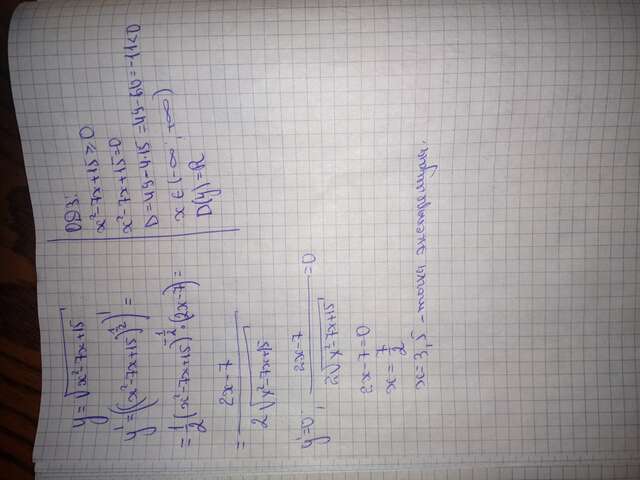 y = √x²-7x+15
y' = ((x²-7x+15)^½)' =
= ½(x²-7x+15)^-½ · (2x-7) =
= (2x-7)/(2√x²-7x+15)
y'=0; (2x-7)/(2√x²-7x+15) = 0
2x-7=0
x = 7/2
x = 3,5 - точка экстремума.
ОДЗ:
x²-7x+15≥0
x²-7x+15=0
D=49-4·15=49-60=-11<0
x∈(-∞; +∞)
D(y)=R